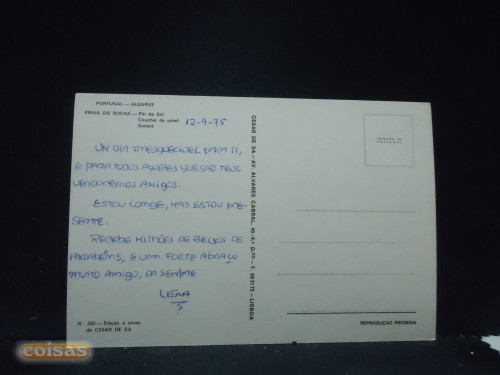 PORTUGAL — ALGARVE
PRAIA DA ROCHA — Pôr do Sol
Coucher de soleil
Sunset
12-9-75
UM DIA INESQUECÍVEL PARA TI,
E PARA TODOS AQUELES QUE SÃO TEUS
VERDADEIROS AMIGOS.
ESTOU LONGE, MAS ESTOU PRE-
SENTE.
RECEBE MILHÕES DE BEIJOS DE
PARABÉNS, E UM FORTE ABRAÇO
MUITO AMIGO, DA SEMPRE
LENA
Edição e cores
de CESAR DE SA
CESAR DE SA — AV. ALVARES CABRAL, — LISBOA
REPRODUÇÃO PROIBIDA
coisas